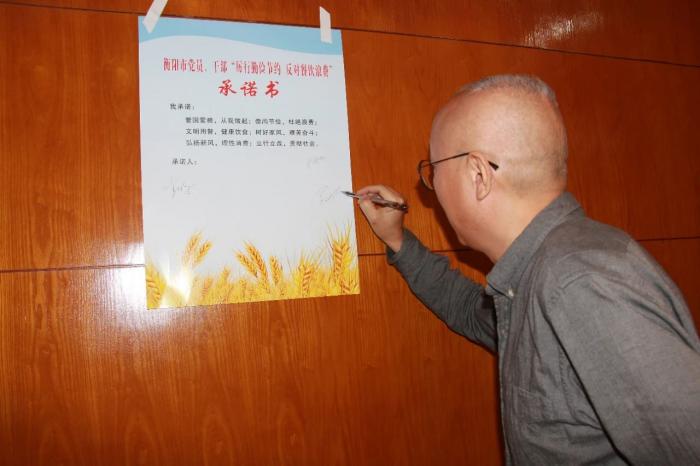 衡阳市党员、干部“厉行勤俭节约 反对餐饮浪费”
承诺书
我承诺：
爱国爱粮，从我做起；崇尚节俭，杜绝浪费；
文明用餐，健康饮食；树好家风，艰苦奋斗；
弘扬新风，理性消费；立行立改，贡献社会。
承诺人：